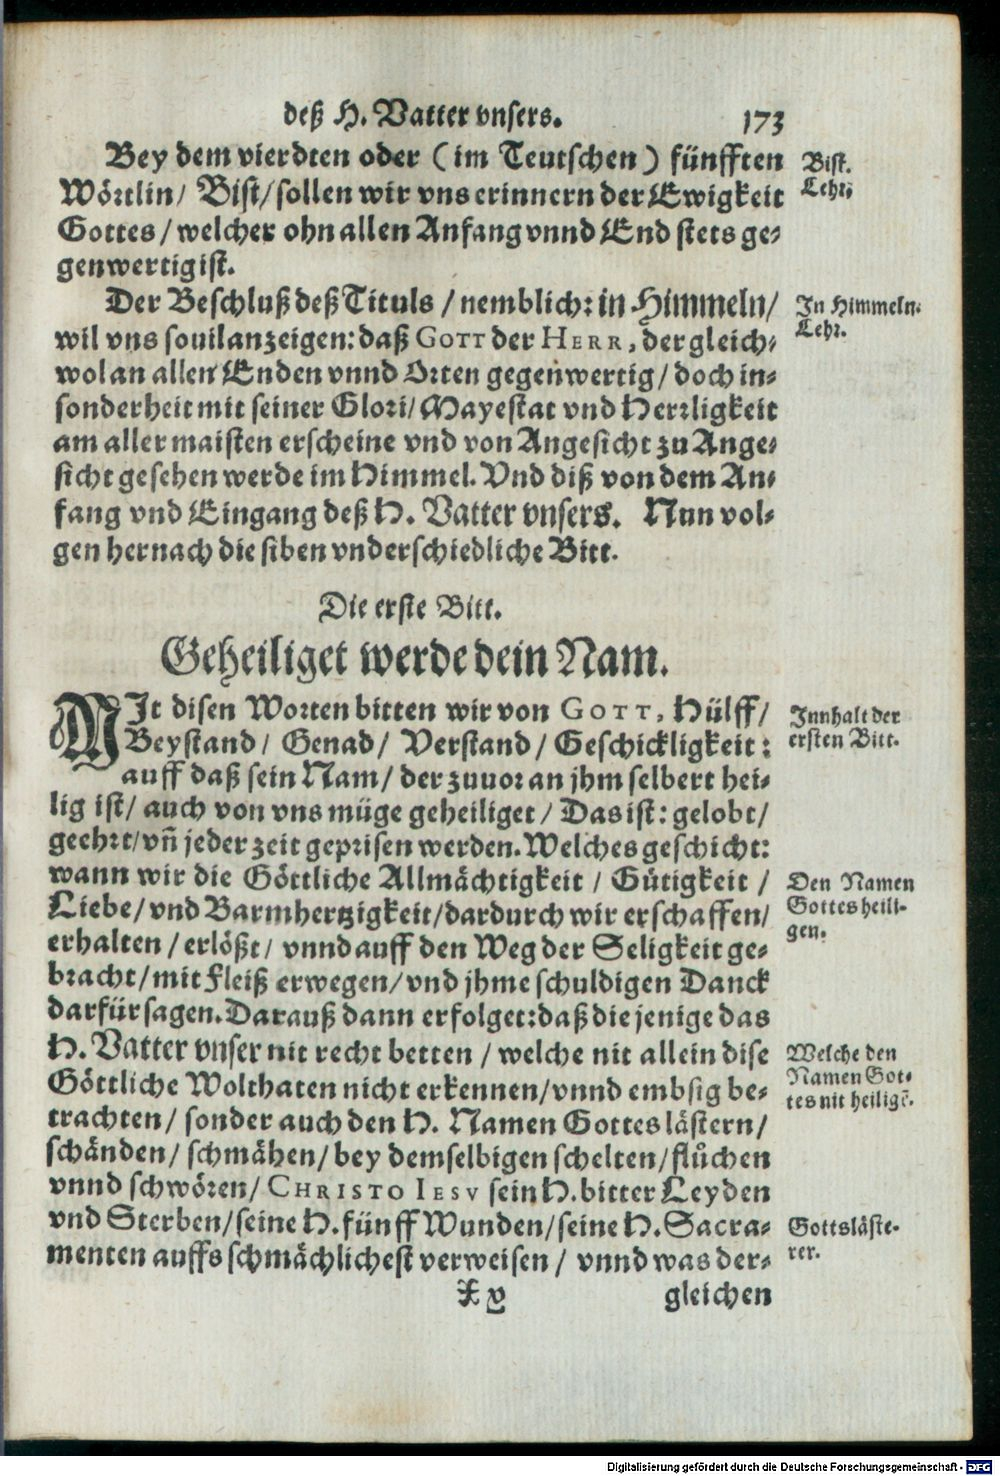 deß H. Vatter vnsers. 173
Bey dem vierdten oder (im Teutschen) fünfften
Wörtlin/ Bist/ sollen wir vns erinnern der Ewigkeit
Gottes/ welcher ohn allen Anfang vnnd End stets ge-
genwertig ist.
Bist.
Lehr.
Der Beschluß deß Tituls / nemblich: in Himmeln/
wil vns souil anzeigen: daß GOTT der HERR, der gleich-
wol an allen Enden vnnd Orten gegenwertig/ doch in-
sonderheit mit seiner Glori/ Mayestat vnd Herrligkeit
am aller maisten erscheine vnd von Angesicht zu Ange-
sicht gesehen werde im Himmel. Vnd diß von dem An-
fang vnd Eingang deß H. Vatter vnsers. Nun vol-
gen hernach die siben vnderschiedliche Bitt.
In Himmeln.
Lehr.
Die erste Bitt.
Geheiliget werde dein Nam.
MIt disen Worten bitten wir von GOTT, Hülff/
Beystand/ Genad/ Verstand/ Geschickligkeit:
auff daß sein Nam/ der zuuor an jhm selbert hei-
lig ist/ auch von vns müge geheiliget/ Das ist: gelobt/
geehrt/ vñ jeder zeit geprisen werden. Welches geschicht:
wann wir die Göttliche Allmächtigkeit / Gütigkeit /
Liebe/ vnd Barmhertzigkeit/ dardurch wir erschaffen/
erhalten / erlößt/ vnnd auff den Weg der Seligkeit ge-
bracht/ mit Fleiß erwegen/ vnd jhme schuldigen Danck
darfür sagen. Darauß dann erfolget: daß die jenige das
H. Vatter vnser nit recht betten / welche nit allein dise
Göttliche Wolthaten nicht erkennen/ vnnd embsig be-
trachten/ sonder auch den H. Namen Gottes lästern/
schänden/ schmähen/ bey demselbigen schelten/ flůchen
vnnd schwören/ CHRISTO IESV sein H. bitter Leyden
vnd Sterben/ seine H. fünff Wunden/ seine H. Sacra-
menten auffs schmächlichest verweisen/ vnnd was der-
Innhalt der
ersten Bitt.
Den Namen
Gottes heili-
gen.
Welche den
Namen Got-
tes nit heiligẽ.
Gottsläste-
rer.
X v gleichen
Digitalisierung gefördert durch die Deutsche Forschungsgemeinschaft - DFG